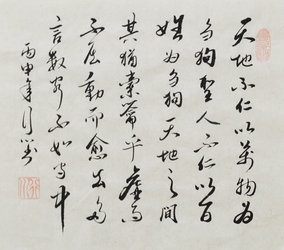 天地不仁以萬物為
芻狗聖人不仁以百
姓為芻狗天地之間
其猶橐籥乎虛而
不屈動而愈出多
言數窮不如守中
丙申年